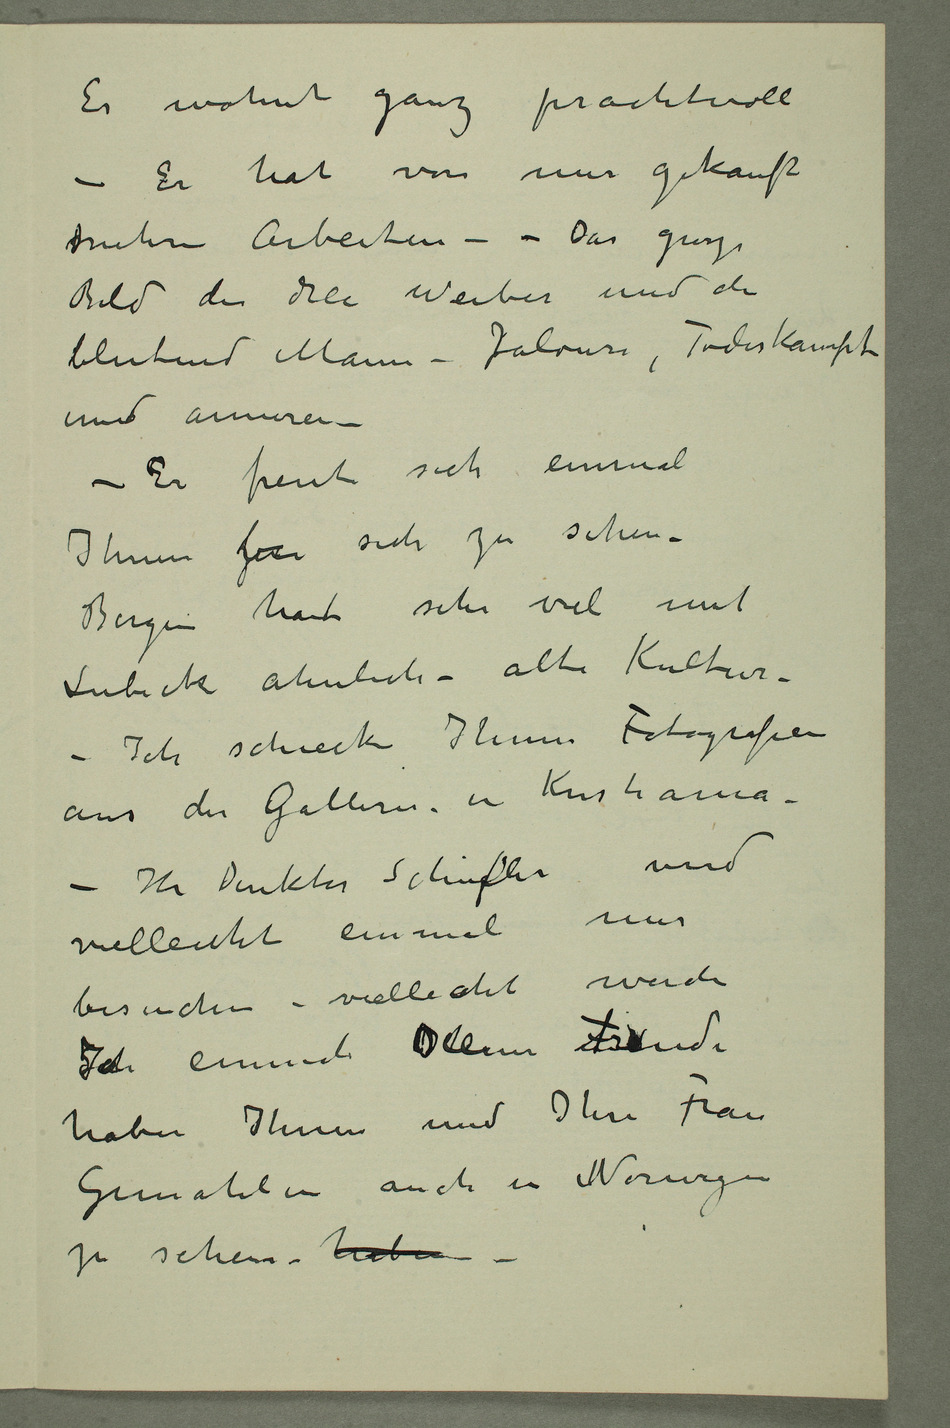 Er wohnt ganz prachtvoll
– Er hat von mir gekauft
mehre Arbeiten – – Das grosse
Bild die drei Weiber und der
blutend Mann – Jalousi, Todeskampf
und anneren –
– Er freut sich einmal
Ihnen sich zu sehen –
Bergen hat sehr viel mit
Lubeck ahnlich – alte Kultur –
– Ich schicke Ihnen Fotografien
aus der Gallerie in Kristiania –
– Hr Direktor Schiefler wird
vielleicht einmal mir
besuchen – vielleicht werde
Ich einmal die Freude
haben Ihnen und Ihre Frau
Gemahlin auch in Norwegen
zu sehen – haben –